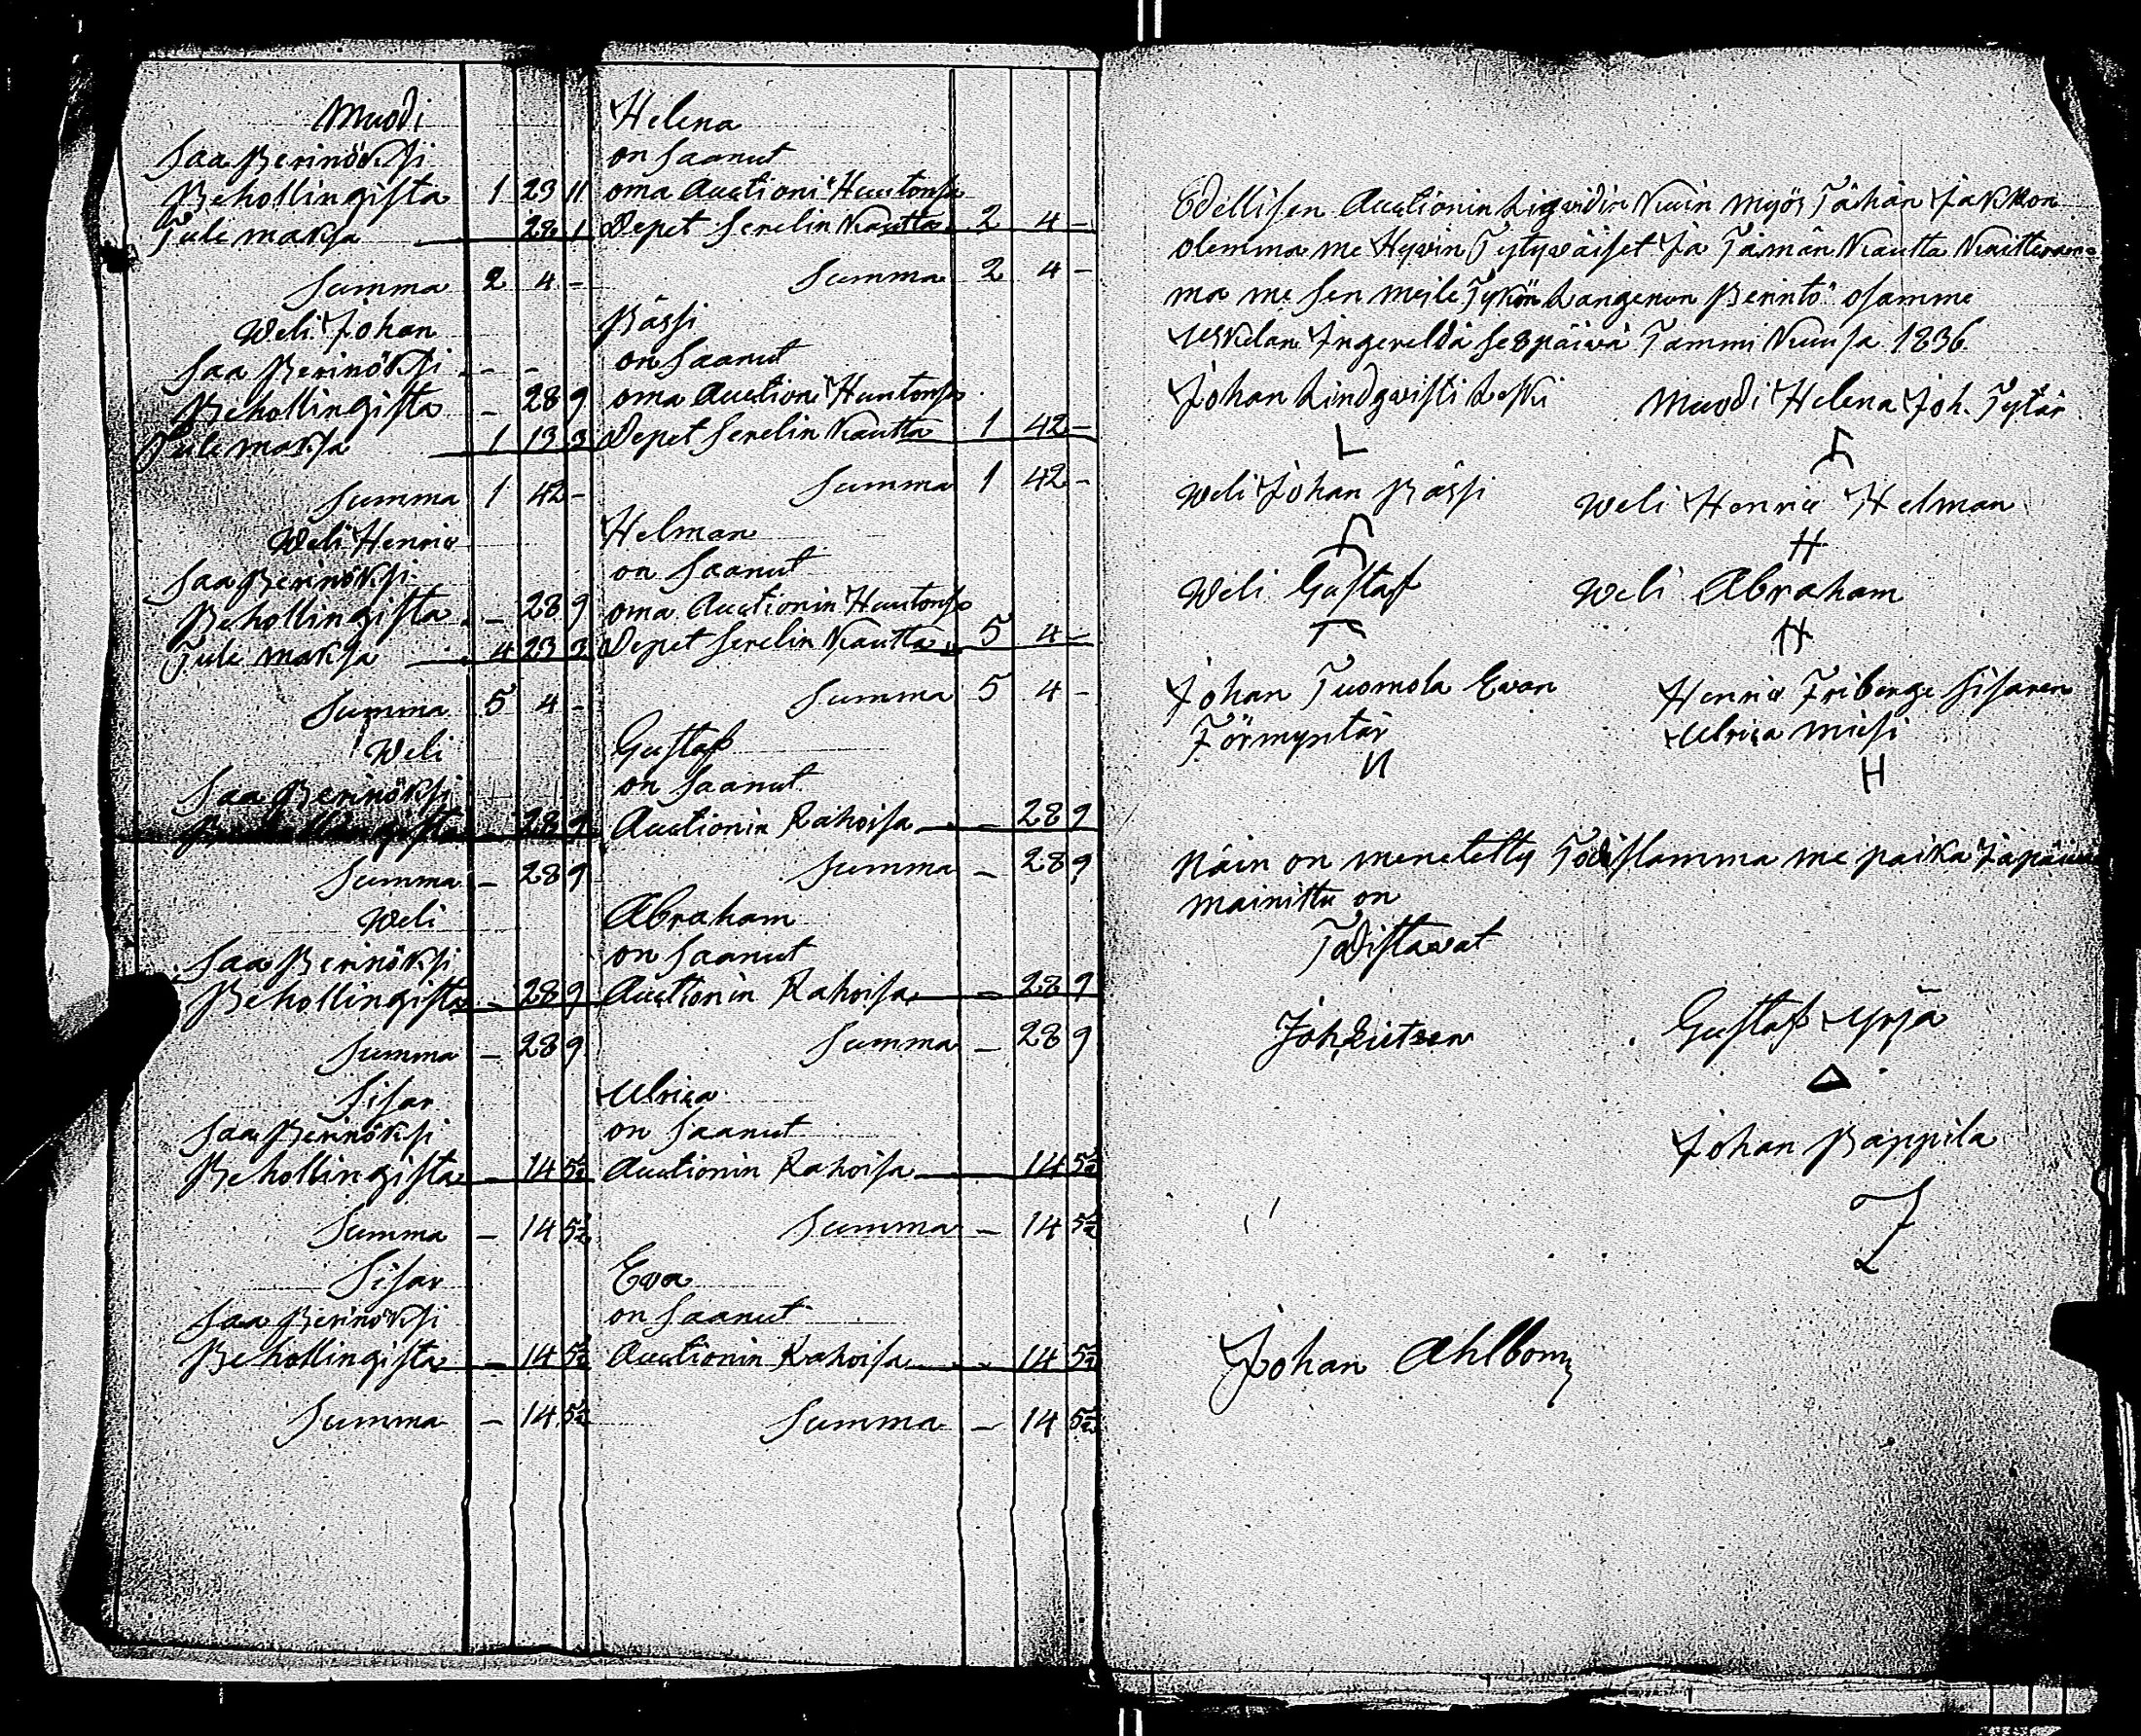 Muodi Helena
saa Perinöksi on saanut
Behollingista 1 23 11 oma Auctioni Huutonsa
Tule maksa 28 1 Depet Serelin Kautta 2 4 -
Summa 2 4 - Summa 2 4 -
Weli Johan Pässi
saa Perinöksi - - on saanut
Behollingista - 28 9 oma Auction Huutonsa
Tule maksa 1 13 3 Depet Serelin Kautta 1 42 -
Summa 1 42 - Summa 1 42 -
Weli Henric Helman
saa Perinöksi on saanut
Behollingista - 28 9 oma Auctionin Huutonsa
Tule maksa 4 23 3 Depet Serelin Kautta 5 4 -
Summa 5 4 - Summa 5 4 -
Weli Gustaf
saa Perinöksi on saanut
Behollingista - 28 9 Auctionin Rahoisa - 28 9
Summa - 28 9 Summa - 28 9
Weli Abraham
saa Perinöksi on saanut
Behollingista - 28 9 Auctionin Rahoisa - 28 9
Summa - 28 9 Summa - 28 9
Sisar Ulrica
saa Perinöksi on saanut
Behollingista - 14 5½ Auctionin Rahoisa 14 5½
Summa - 14 5½ Summa - 14 5½
Sisar Eva
saa Perinöksi on saanut
Behollingista - 14 5½ Auctionin Rahoisa - 14 5½
Summa - 14 5½ Summa - 14 5½
Edellisen Auctionin Liqvidin Kuin myös Tähän Jakkon
olemma me Hyvin Tytyväiset Ja Tämän Kautta Kvitteera-
ma me sen meile Tykön Langenen Perintö osamme
Uskelan Ingereldä se 8 päivä Tammi Kuusa 1836
Johan Lindqvisti Leski Muodi Helena Joh. Tytär
Weli Johan Pässi Weli Henric Helman
H
Weli Gustaf Weli Abraham
H
Johan Tuomola Evan Henric Friberge Sisaren
Förmyntär Ulrica miesi
H
Näin on menetetty Todistamma me paika Ja päivä
mainittu on
Todistavat
Gustaf Yrjä
Johan Pappila
Johan Ahlbom